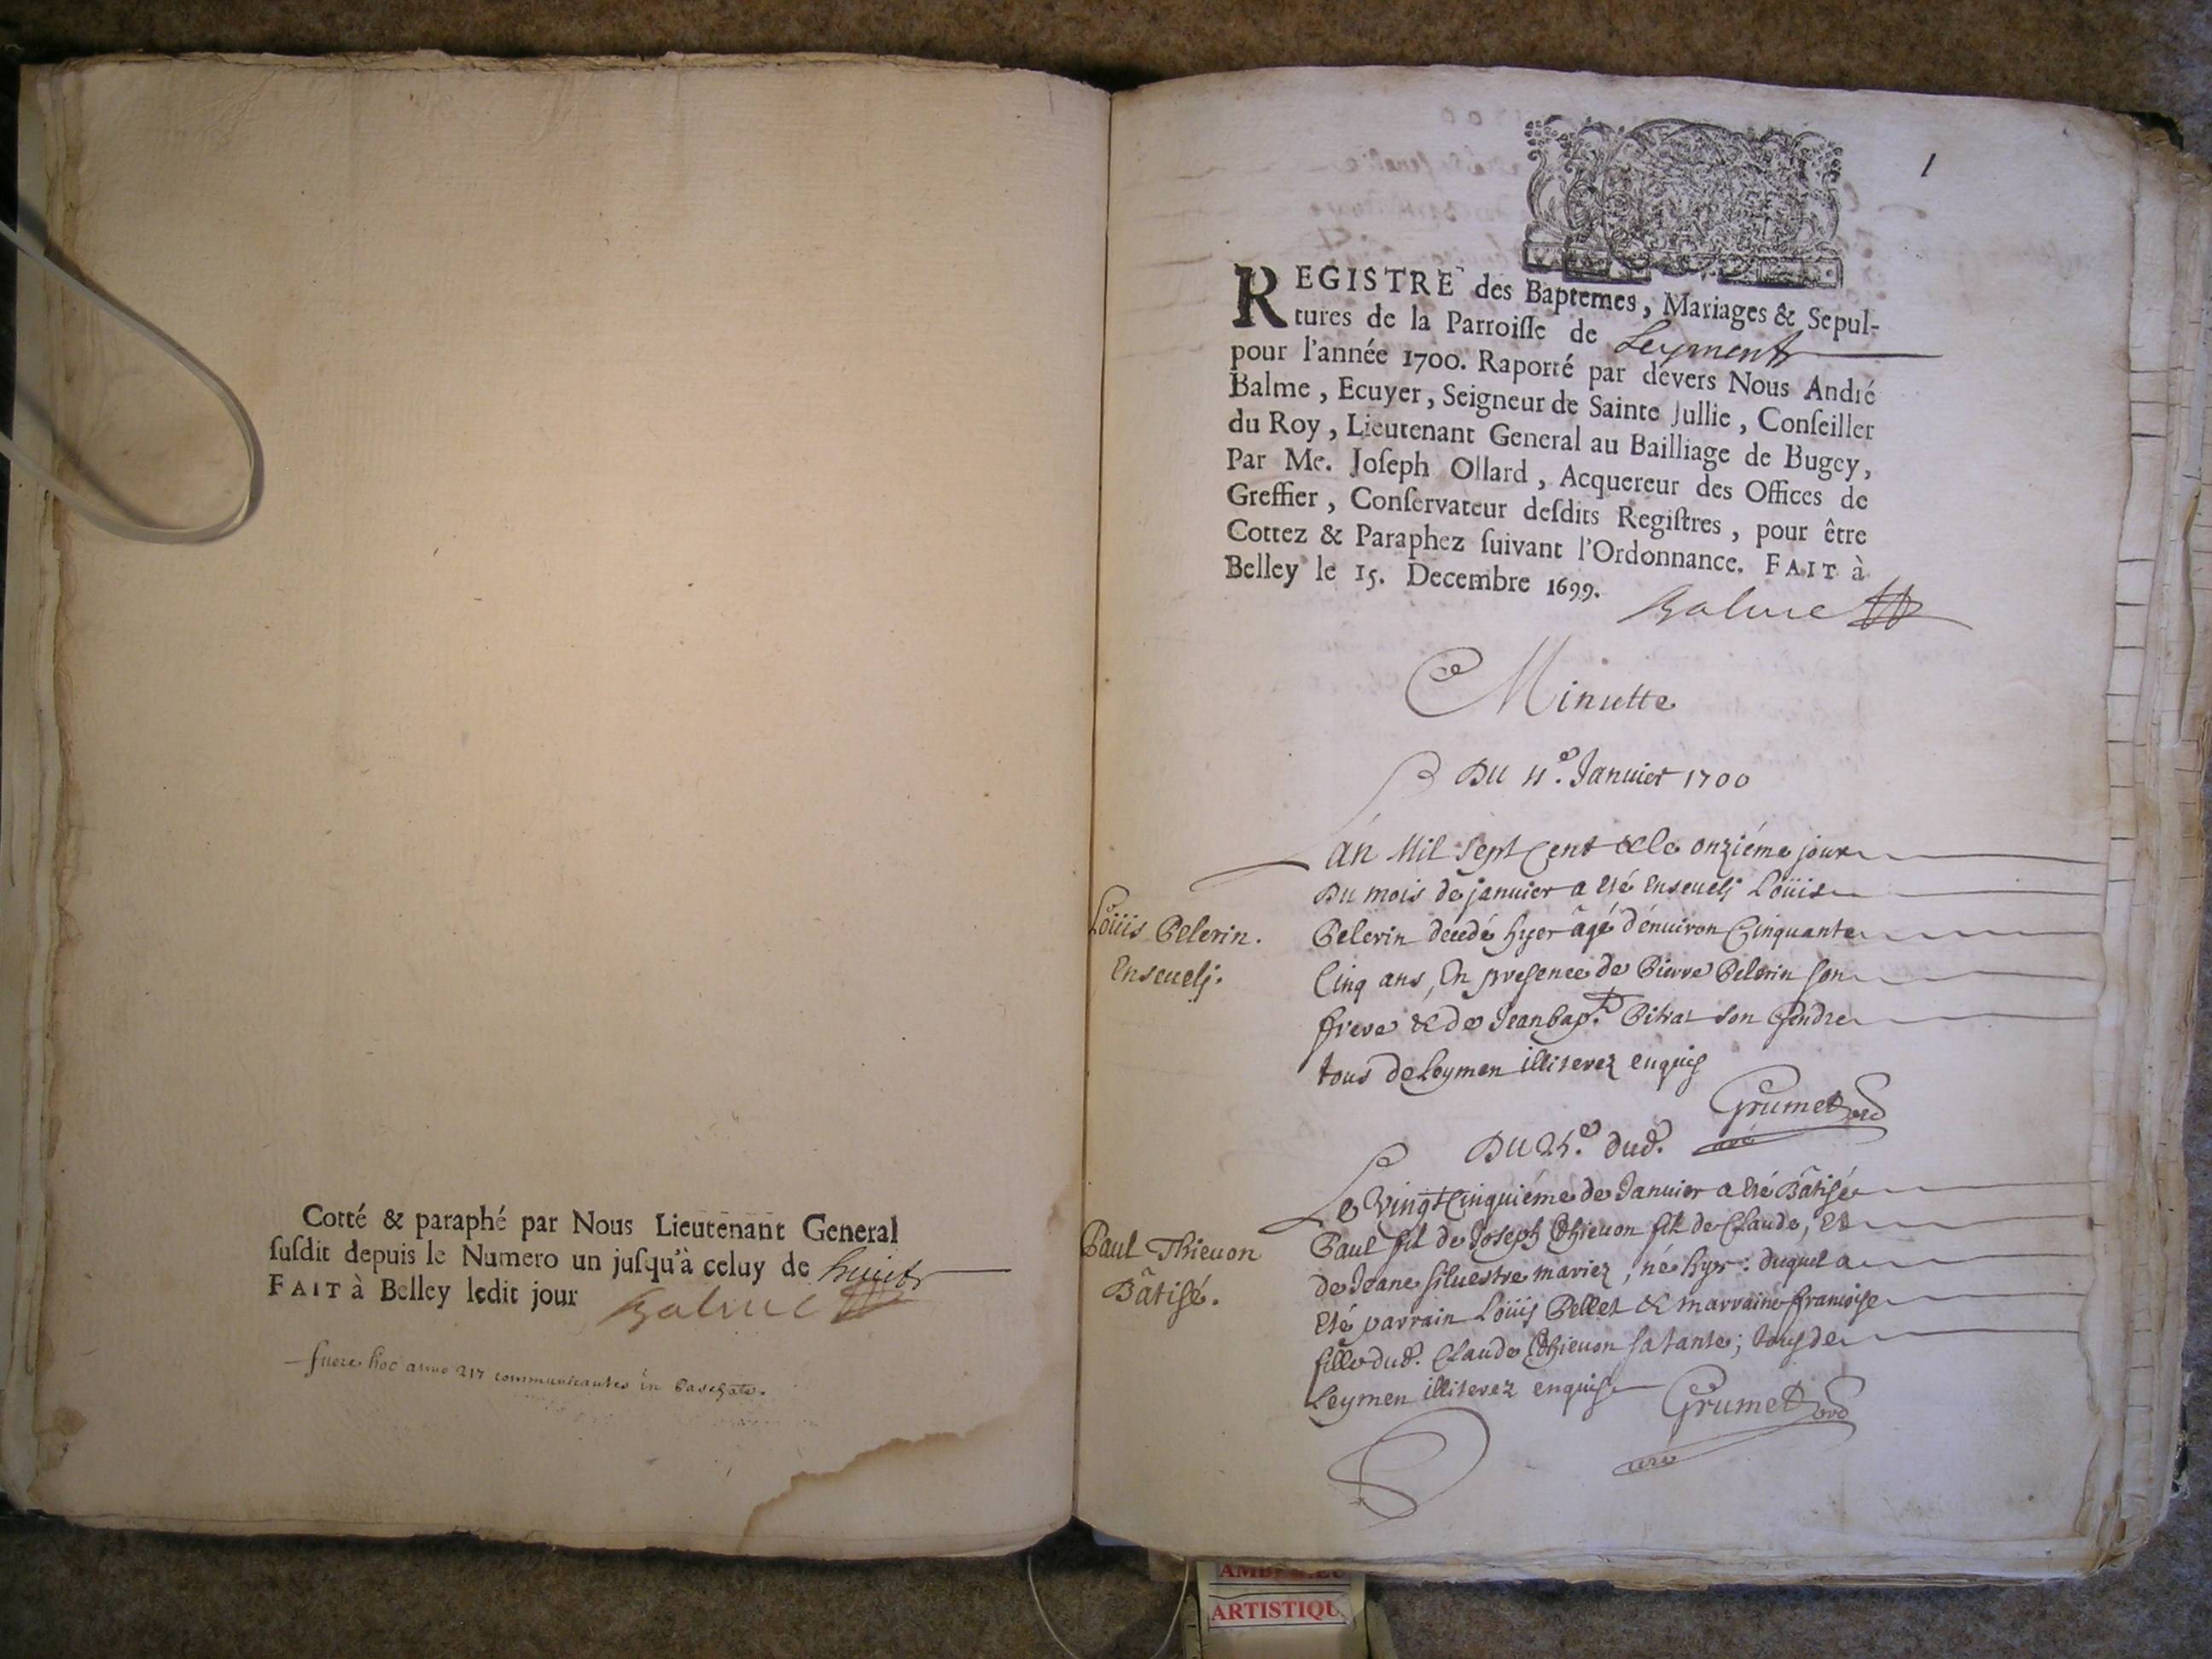 Cotté & paraphé par Nous Lieutenant General
susdit depuis le Numero un jusqu'à celuy de huict
FAIT à Belley ledit jour Balme
fuere hoc anno 217 communicantes in Paschate.
1
REGISTRE des Baptemes, Mariages & Sepul-
tures de la Parroisse de Leyment
pour l'année 1700. Raporté par devers Nous André
Balme, Ecuyer, Seigneur de Sainte Jullie, Conseiller
du Roy, Lieutenant General au Bailliage de Bugey,
Par Me. Joseph Ollard, Acquereur des Offices de
Greffier, Conservateur desdits Registres, pour être
Cottez & Paraphez suivant l'Ordonnance. FAIT à
Belley le 15. Decembre 1699.
Balme
Minutte
Du 11e. Janvier 1700
L'an Mil Sept Cent & le onziéme jour
Du mois de janvier a eté Enseveli Loüis
Loüis Pelerin.
Enseveli.
Pelerin décédé hyer âgé d'énuiron Cinquante
Cinq ans, En presence de Pierre Pelerin son
frere & de Jean bapt. Pitrat son Gendre
tous de Leymen illiterez enquis
Grumet
curé
Du 25e. dud.
Le Vingt Cinquiéme de Janvier a eté Bâtisé
Paul Thieuon
Bâtisé.
Paul fil de Joseph Thieuon fil de Claude, et
de Jeane Siluestre mariez, né hyer: duquel a
eté parrain Loüis Pellet & marraine françoise
fille dud. Claude Thieuon sa tante; tous de
Leymen illiterez enquis Grumet
curé
ARTISTIQU